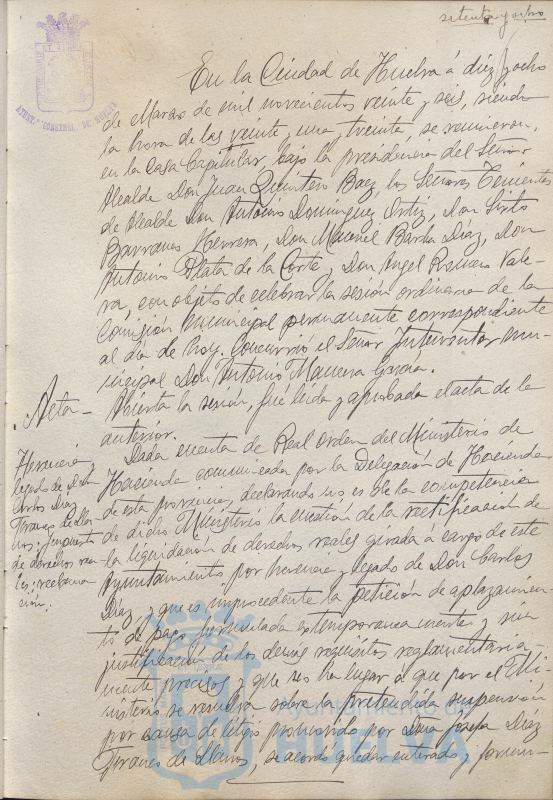 setenta y ocho
AYUNT. CONSTNAL. DE HUELVA
En la Ciudad de Huelva á diez y ocho
de Marzo de mil novecientos veinte y seis, siendo
la hora de las veinte y una y treinta, se reunieron,
en la Casa Capitular, bajo la presidencia del Señor
Alcalde Don Juan Quintero Baez, los Señores Tenientes
de Alcalde Don Antonio Dominguez Ortiz, Don Sixto
Barranco Herrera, Don Manuel Barba Díaz, Don
Antonio Plata de la Corte y Don Angel Romero Vale-
ra, con objeto de celebrar la sesión ordinaria de la
Comisión Municipal permanente correspondiente
al día de hoy. Concurrió el Señor Interventor mu-
nicipal Don Antonio Manuera García.
Acta -
Abierta la sesión, fue leida y aprobada el acta de la
anterior.
Herencia y
legado de Don
Carlos Díaz
Franco de Lla-
nos: impuesto
de derechos rea-
les: reclama-
ción.
Dada cuenta de Real Orden del Ministerio de
Hacienda comunicada por la Delegación de Hacienda
de esta provincia, declarando no es de la competencia
de dicho Ministerio la cuestión de la rectificación de
la liquidación de derechos reales girada á cargo de este
Ayuntamiento, por herencia y legado de Don Carlos
Díaz y que es improcedente la petición de aplazamien-
to de pago formulada extemporaneamente y sin
justificación de los demas requisitos reglamentaria-
mente precisos, y que no ha lugar á que por el Mi-
nisterio se resuelva sobre la pretendida suspensión
por causa de litigio promovido por Doña Josefa Díaz
Franco de Llanos, se acordó quedar enterado y formu-
Ayuntamiento de
HUELVA